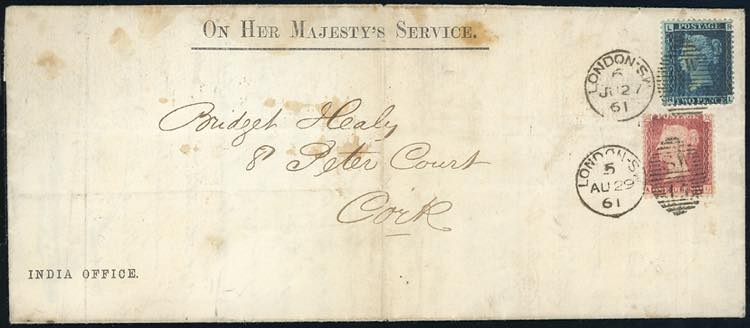 ON HER MAJESTY'S SERVICE.
POSTAGE
TWO PENCE
LONDON·S.W
6
JU 27
61
Bridget Healy
8 Peter Court
Cork
LONDON·S.W
5
AU 29
61
INDIA OFFICE.